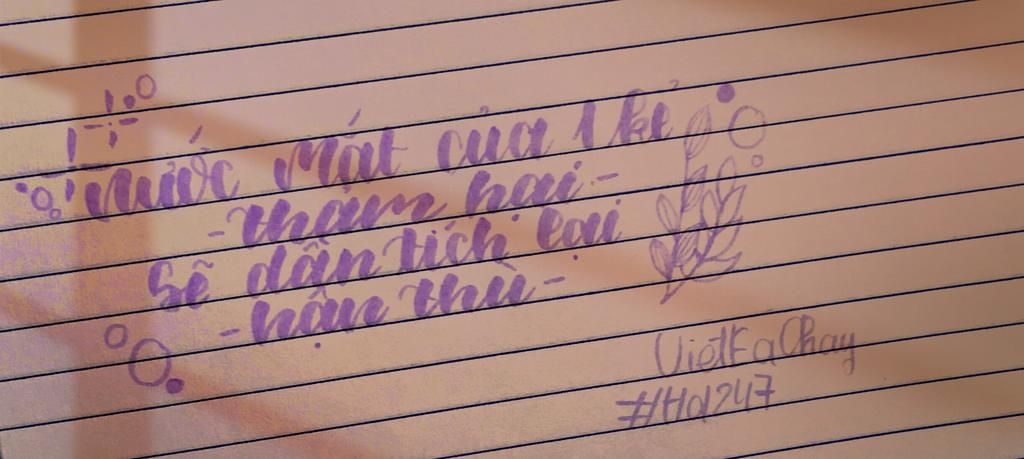 Nước Mắt của 1 kẻ
- thảm hại -
Sẽ dần tích lại
- hận thù -
VietFaChay
#Hd247